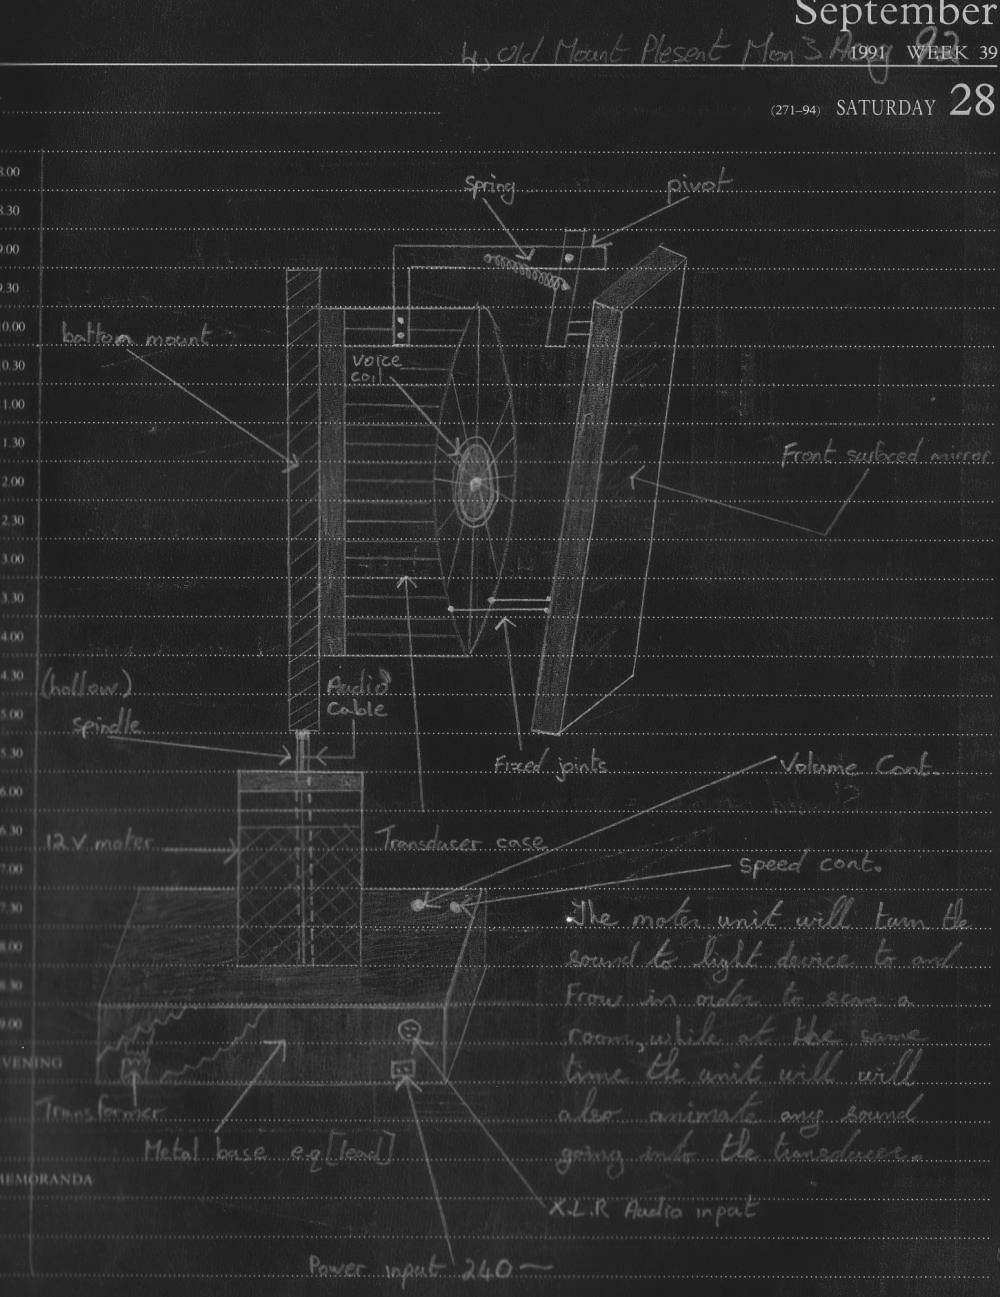 September
1991 WEEK 39
4, Old Mount Plesent Mon 3 Aug 92
(271–94) SATURDAY 28
8.00
8.30
9.00
9.30
10.00
10.30
1.00
1.30
2.00
2.30
3.00
3.30
4.00
4.30
5.00
5.30
6.00
6.30
7.00
7.30
8.00
8.30
9.00
VENING
MEMORANDA
Spring
pivot
bottom mount
voice
coil
Front surfaced mirror
(hollow)
spindle
Audio
Cable
Fixed joints
Volume Cont.
12 V moter
Transducer case
Speed cont.
The moter unit will turn the
sound to light device to and
Frow in order to scan a
room, while at the same
time the unit will will
also animate any sound
going into the transducer.
Transformer
Metal base eg [lead]
X.L.R Audio input
Power input 240 ~